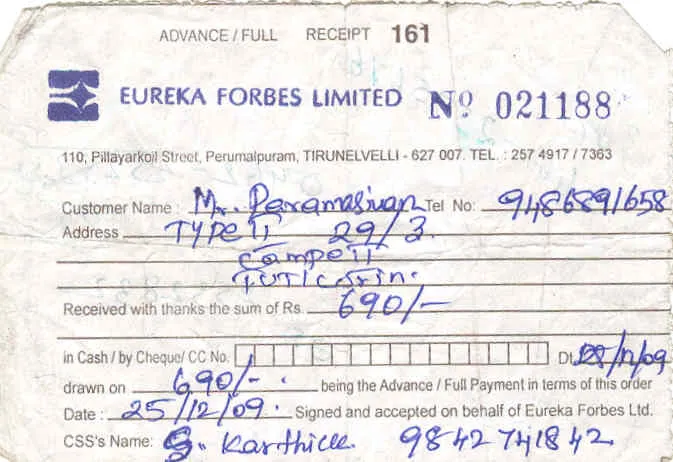 ADVANCE / FULL RECEIPT 161
EUREKA FORBES LIMITED Nº 021188
110, Pillayarkoil Street, Perumalpuram, TIRUNELVELLI - 627 007. TEL. : 257 4917 / 7363
Customer Name : Mr. Paramasivan Tel No: 9486891658
Address TYPE II 29/3
Camp II
Tuticorin.
Received with thanks the sum of Rs. 690/-
in Cash / by Cheque/ CC No. Dt. 25/12/09
drawn on 690/-. being the Advance / Full Payment in terms of this order
Date : 25/12/09. Signed and accepted on behalf of Eureka Forbes Ltd.
CSS's Name: S. Karthick 9842741842